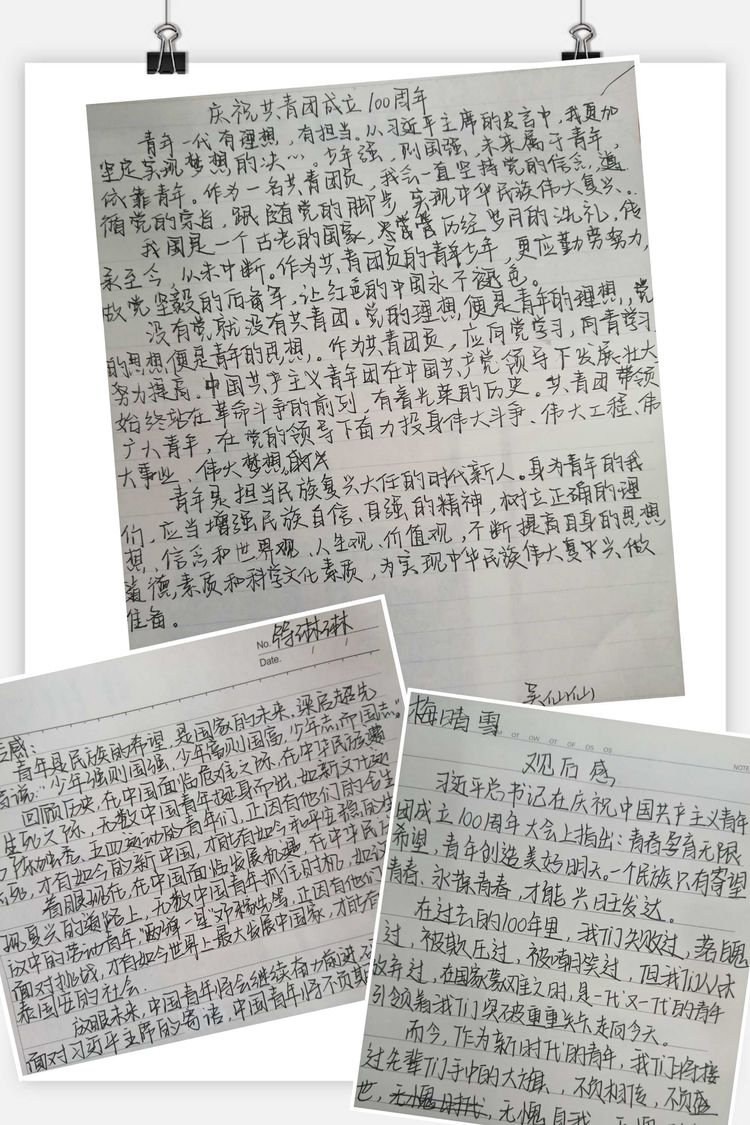 庆祝共青团成立100周年
青年一代有理想，有担当。从习近平主席的发言中，我更加
坚定实现梦想的决心。少年强，则国强，未来属于青年，
依靠青年。作为一名共青团员，我会一直坚持党的信念，遵
循党的宗旨，跟随党的脚步，实现中华民族伟大复兴。
我国是一个古老的国家，尽管历经岁月的洗礼，传
承至今，从未中断。作为共青团员的青年少年，更应勤劳努力，
做党坚毅的后备军，让红色的中国永不褪色。
没有党就没有共青团。党的理想，便是青年的理想，党
的思想，便是青年的思想。作为共青团员，应向党学习，向青学习
努力提高。中国共产主义青年团在中国共产党领导下发展壮大
始终站在革命斗争的前列，有着光荣的历史。共青团带领
广大青年，在党的领导下奋力投身伟大斗争、伟大工程、伟
大事业、伟大梦想的
青年是担当民族复兴大任的时代新人。身为青年的我
们，应当增强民族自信、自强的精神，树立正确的理
想，信念和世界观、人生观、价值观，不断提高自身的思想
道德，素质和科学文化素质，为实现中华民族伟大复兴做
准备。
吴仙仙
No. 符琳琳
Date. / /
感：
青年是民族的希望，是国家的未来。梁启超先
言："少年强则国强，少年富则国富，少年志而国志。"
回顾历史，在中国面临危难之际，在中华民族
生死之际，无数中国青年挺身而出，如新文化
五四运动的青年们，正因有他们的
才有如今的新中国，才能有如今和平安稳的
着眼现在，在中国面临发展机遇，在中华民
复兴的道路上，无数中国青年抓住时机，如
议中的劳动青年，正因有他们
面对挑战，才有如今世界上最大发展中国家，才能有
泰国安的社会。
放眼未来，中国青年将会继续奋力前进，
面对习近平主席的寄语，中国青年将不负
梅晴雪
NOTE
观后感
习近平总书记在庆祝中国共产主义青年
团成立100周年大会上指出：青春孕育无限
希望，青年创造美好明天。一个民族只有寄望
青春、永葆青春，才能兴旺发达。
在过去的100年里，我们失败过，落魄
过，被欺压过，被嘲笑过，但我们从未
放弃过，在国家蒙难之时，是一代又一代的青年
引领着我们突破重重关卡走向今天。
而今，作为新时代的青年，我们将接
过先辈们手中的大旗，不负相传，不负盛
世，无愧时代，无愧自我，无愧